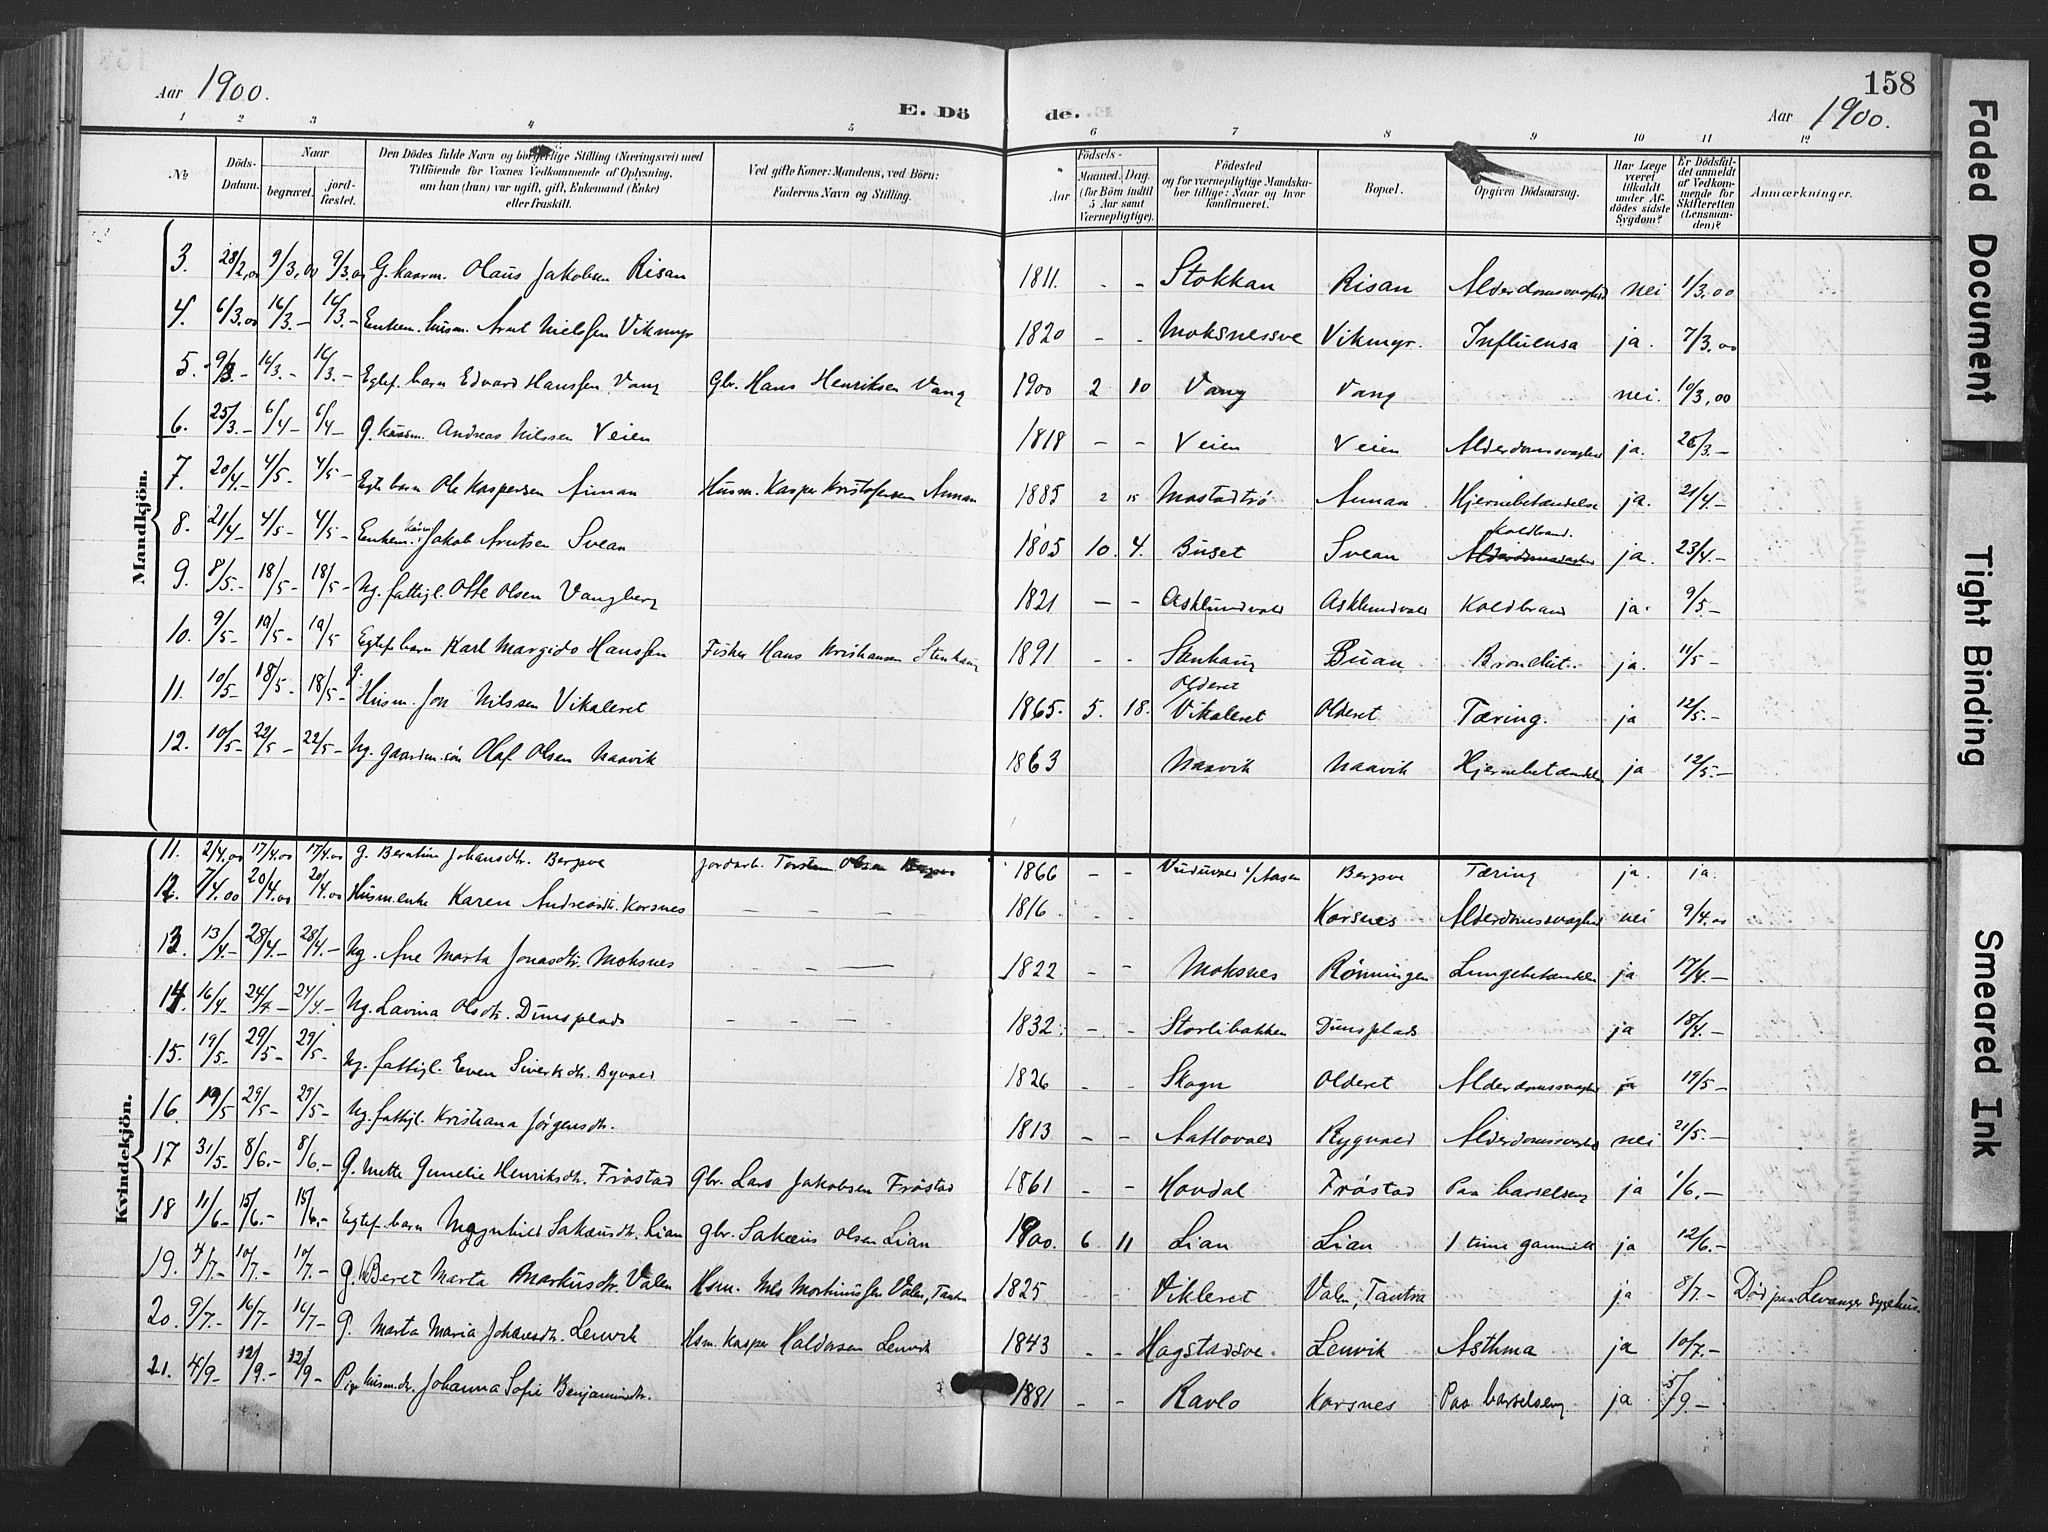 158
Aar 1900.
E. Döde.
Aar 1900.
1 2 3 4 5 6 7 8 9 10 11 12
No
Döds-Datum.
Naar
begravet.
jord-fæstet.
Den Dödes fulde Navn og borgerlige Stilling (Næringsvei) med
Tilföiende for Voxnes Vedkommende af Oplysning,
om han (hun) var ugift, gift, Enkemand (Enke)
eller fraskilt.
Ved gifte Koner: Mandens, ved Börn:
Faderens Navn og Stilling.
Födsels-
Aar
Maaned. Dag.
(for Börn indtil
5 Aar samt
Værnepligtige).
Födested
og for værnepligtige Mandska-
ber tillige: Naar og hvor
konfirmeret.
Bopæl.
Opgiven Dödsaarsag.
Har Læge
været
tilkaldt
under Af-
dödes sidste
Sygdom?
Er Dödsfal-
det anmeldt
af Vedkom-
mende for
Skifteretten
(Lensman-
den)?
Anmærkninger.
Mandkjön.
3. 28/2,00 9/3,00 9/3.00 G. kaarm. Olaus Jakobsen Risan 1811. - - Stokkan Risan Alderdomssvaghed nei 1/3.00
4. 6/3.00 14/3.- 14/3.- Enkem. husm. Arnt Nielssen Vikmyr 1820 - - Moksnessve Vikmyr. Influensa ja. 7/3.00
5. 9/3.- 16/3.- 16/3.- Egtef. barn Edvard Hanssen Vang Gbr. Hans Henriksen Vang 1900 2 10 Vang Vang nei. 10/3,00
6. 25/3.- 6/4- 6/4- G. kaarm. Andreas Nilssen Veien 1818 - - Veien Veien Alderdomssvaghed ja. 26/3.-
7. 20/4.- 4/5.- 4/5- Egte barn Ole Kaspersen Aunan Husm. Kasper Kristofersen Aunan 1885 2 15 Mostadtrø Aunan Hjernebetændelse ja. 21/4.-
8. 21/4- 4/5- 4/5- Enkem. kaarm. Jakob Arntsen Svean 1805 10. 4. Buset Svean Koldbrand. ja. 23/4.-
9. 8/5.- 18/5- 18/5- Ug. fattigl. Otte Olsen Vangberg 1821 - - Asklundvald Asklundvald Koldbrand ja. 9/5-
10. 9/5- 19/5- 19/5 Egtef. barn Karl Margido Hanssen Fisker Hans Kristiansen Stenhaug 1891 - - Stenhaug Buan Bronchit. ja. 11/5-
11. 10/5- 18/5- 18/5- g. Husm. Jon Nilssen Vikaleret 1865. 5. 18. Olderet Vikaleret Olderet Tæring. ja 12/5.-
12. 10/5- 22/5- 22/5- Ug. gaardm. søn Olaf Olsen Naavik 1863 Naavik Naavik Hjernebetændelse ja 12/5.-
Kvindekjön.
11. 2/4.00 17/4.00 17/4.00 G. Johansdtr. Bergsve jordarb. Torsten Olsen 1866 - - Bergsve Tæring ja. ja.
12. 7/4.00 20/4.00 20/4.00 Husm.enke Karen Andreasdtr. Korsnes - - - 1816. - - Korsnes Alderdomssvaghed nei 9/4.00
13. 13/4.- 28/4.- 28/4.- Ug. Ane Marta Jonasdtr. Moksnes - - - 1822 - - Moksnes Rönningen Lungebetændelse ja 17/4.-
14. 16/4.- 24/4- 24/4.- Ug. Lavina Olsdtr. Dunsplads - - - - 1832. - - Storlibakken Dunsplads ja 18/4.-
15. 19/5- 29/5- 29/5- Ug. fattigl. Even Siversdtr. Bynald 1826 - - Skogn Olderet Alderdomssvaghed ja 19/5-
16. 19/5 29/5- 29/5- Ug. fattigl. Kristiana Jørgensdtr. 1813 - - Rygvald Alderdomssvaghed nei 21/5.-
17 31/5- 8/6.- 8/6.- G. Mette Gunelie Henriksdtr. Frøstad Gbr. Lars Jakobsen Frøstad 1861 - - Hovdal Frøstad Paa barselseng ja 1/6.-
18 11/6- 15/6.- 15/6.- Egtef. barn Magnhild Sakæusdtr. Lian gbr. Sakæus Olsen Lian 1900. 6 11 Lian Lian 1 time gammelt ja 12/6.-
19. 4/7.- 10/7- 10/7.- G. Beret Marta Markusdtr. Valen Hsm. Nils Mortinussen Valen, Tautra 1825 Vikleret Valen, Tautra ja 8/7.- Död paa Levanger Sygehus.
20. 9/7.- 16/7- 16/7- G. Marta Maria Johansdtr. Lenvik Hsm. Kasper Haldosen Lenvik 1843 - - Hagstadsve. Lenvik Asthma ja 10/7.-
21. 4/9- 12/9.- 12/9- Pige husm.dtr. Johanna Sofie Benjaminsdtr. 1881 - - Ravlo Korsnes Paa barselseng ja 5/9-
Faded Document
Tight Binding
Smeared Ink